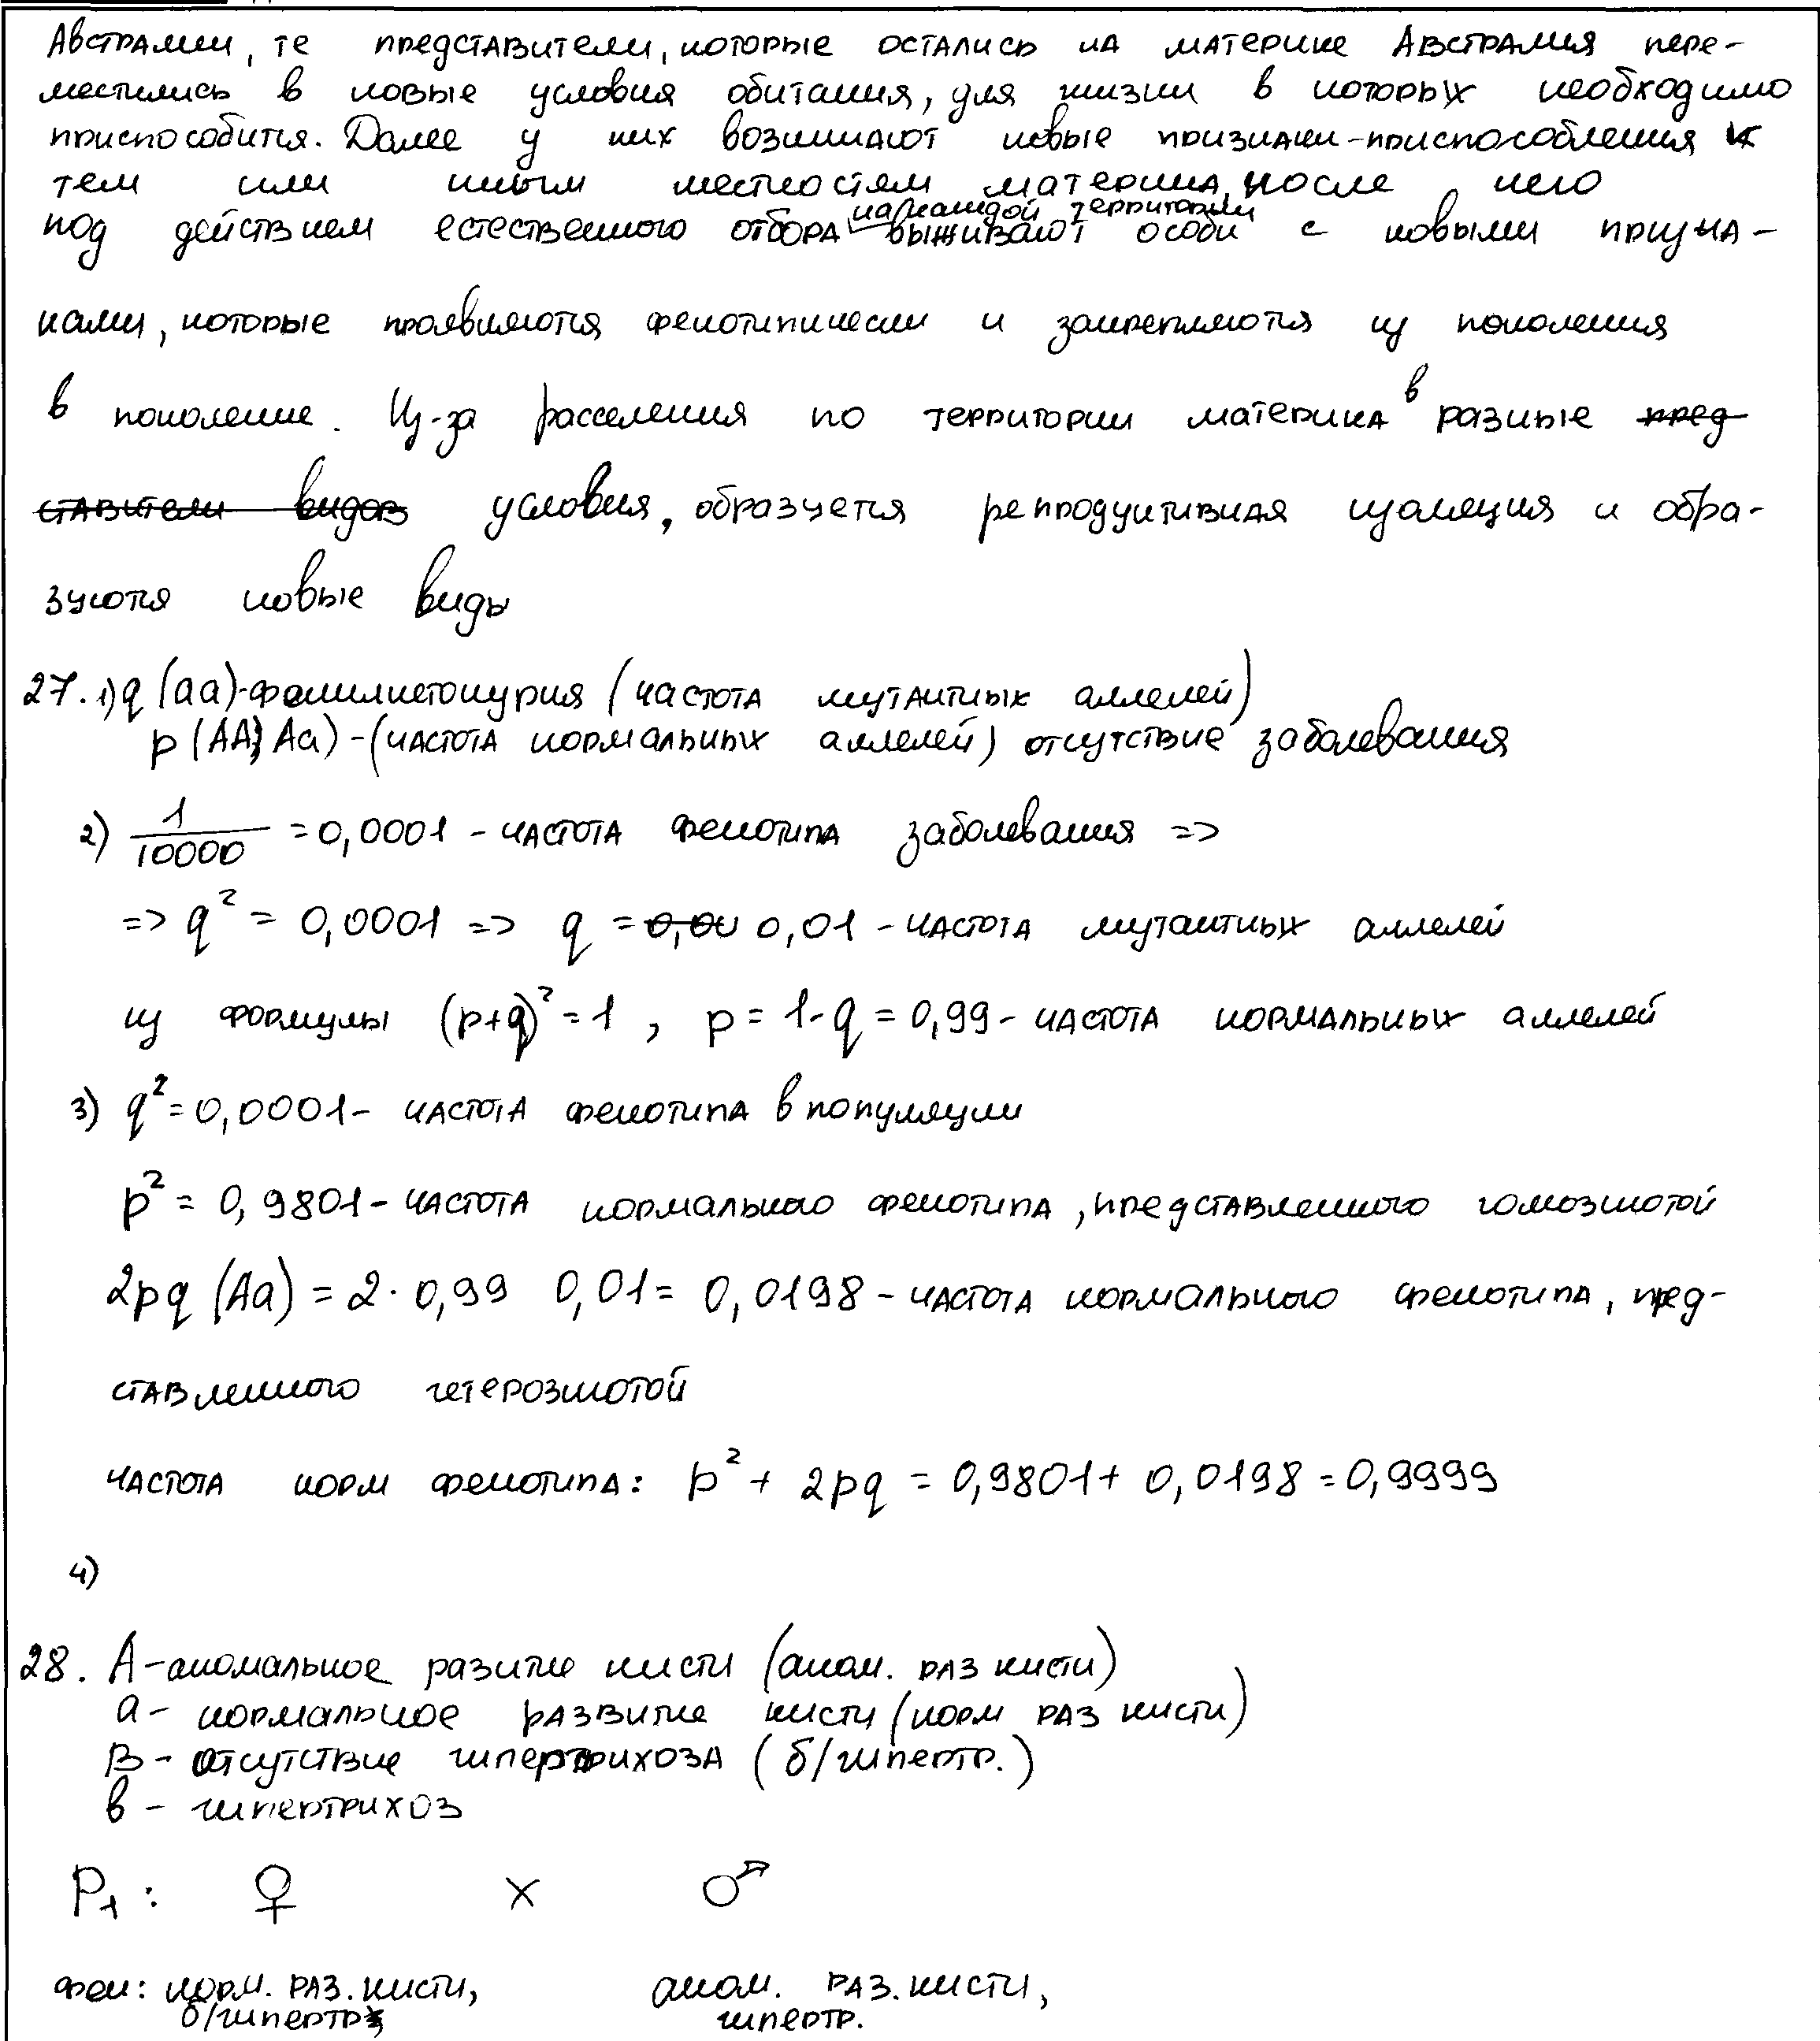 Австралии, те представители, которые остались на материке Австралия пере-
местились в новые условия обитания, для жизни в которых необходимо
приспособится. Далее у них возникают новые признаки-приспособления к
тем или иным местностям материка, после чего
на каждой территории
под действием естественного отбора выживают особи с новыми призна-
ками, которые проявляются фенотипически и закрепляются из поколения
в поколение. Из-за расселения по территории материка в разные пред
ставители видов условия, образуется репродуктивная изоляция и обра-
зуются новые виды
27. 1) q (aa)-фенилкетонурия (частота мутантных аллелей)
p (AA; Aa) - (частота нормальных аллелей) отсутствие заболевания
2) 1/10000 = 0,0001 - частота фенотипа заболевания =>
=> q² = 0,0001 => q = 0,00 0,01 - частота мутантных аллелей
из формулы (p+q)² = 1, p = 1-q = 0,99 - частота нормальных аллелей
3) q² = 0,0001 - частота фенотипа в популяции
p² = 0,9801 - частота нормального фенотипа, представленного гомозиготой
2pq (Aa) = 2 · 0,99 0,01 = 0,0198 - частота нормального фенотипа, пред-
ставленного гетерозиготой
частота норм фенотипа: p² + 2pq = 0,9801 + 0,0198 = 0,9999
4)
28. А - аномальное разитие кисти (аном. раз кисти)
а - нормальное развитие кисти (норм раз кисти)
В - отсутствие гипертрихоза (б/гипертр.)
в - гипертрихоз
P₁: ♀ × ♂
фен: норм. раз. кисти, аном. раз. кисти,
б/гипертр; гипертр.